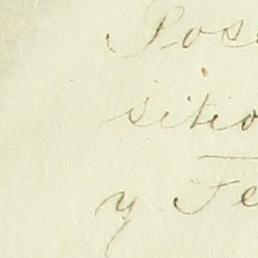 Pos
sitio
y Fe